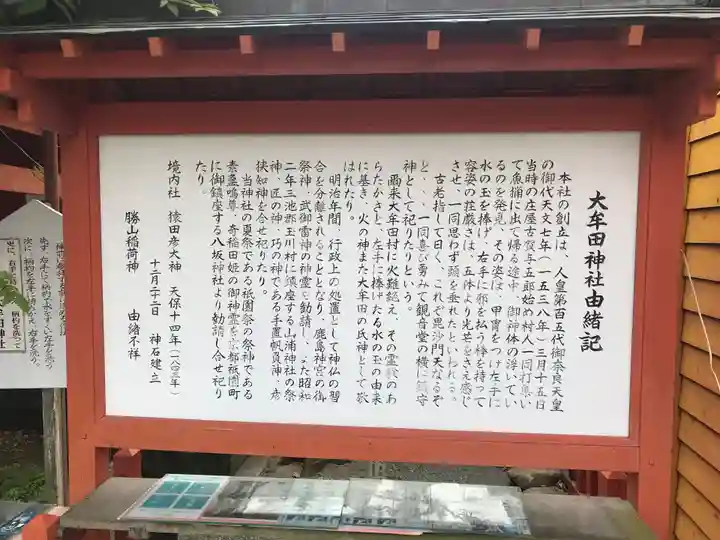 大牟田神社由緒記
本社の創立は、人皇第百五代御奈良天皇
の御代天文七年(一五三八年)三月十五日
当時の庄屋古賀与五郎始め村人一同打集い
て魚捕に出て帰る途中、御神体の浮いてい
るのを発見、その姿は、甲冑をつけ左手に
水の玉を捧げ、右手に邪を払う棒を持って
容姿の荘厳さは、五体より光芒をさえ感じ
させ、一同思わず頭を垂れたといわれる。
古老指して曰く、これぞ毘沙門天なるぞ
と、、、一同喜び勇みて観音堂の横に鎮守
神として祀りたりという。
爾来大牟田村に火難絶え、その霊験のあ
らたかさと、左手に捧げたる水の玉の由来
に基き、火の神また大牟田の氏神として敬
はれたり。
明治年間、行政上の処置として神仏の習
合を分離されることとなり、鹿島神宮の御
祭神・武御雷神の神霊を勧請し、また昭和
二年三池郡玉川村に鎮座する山浦神社の祭
神・匠の神・巧の神である手置帆負神・彦
狭知神を合せ祀りたり。
当神社の夏祭である祇園祭の祭神である
素盞鳴尊、奇稲田姫の御神霊を京都祇園町
に御鎮座する八坂神社より勧請し合せ祀り
たり。
境内社 猿田彦大神 天保十四年(一八四三年)
十二月二十二日 神石建立
勝山稲荷神 由緒不祥
先ず、右手に柄杓で水をすくい左手を洗う。
次に、柄杓を左手に持ちかえ、右手を洗う。